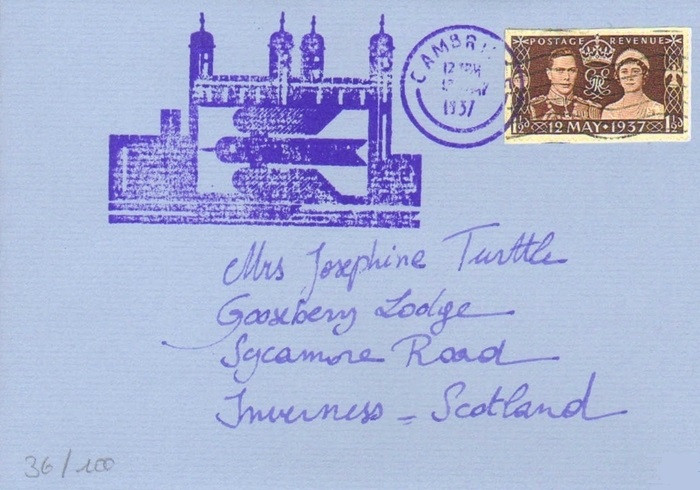 CAMBRI
12 PM
1937
POSTAGE REVENUE
1½D 12 MAY • 1937 1½D
Mrs Josephine Turttle
Gooseberry Lodge
Sycamore Road
Inverness - Scotland
36/100